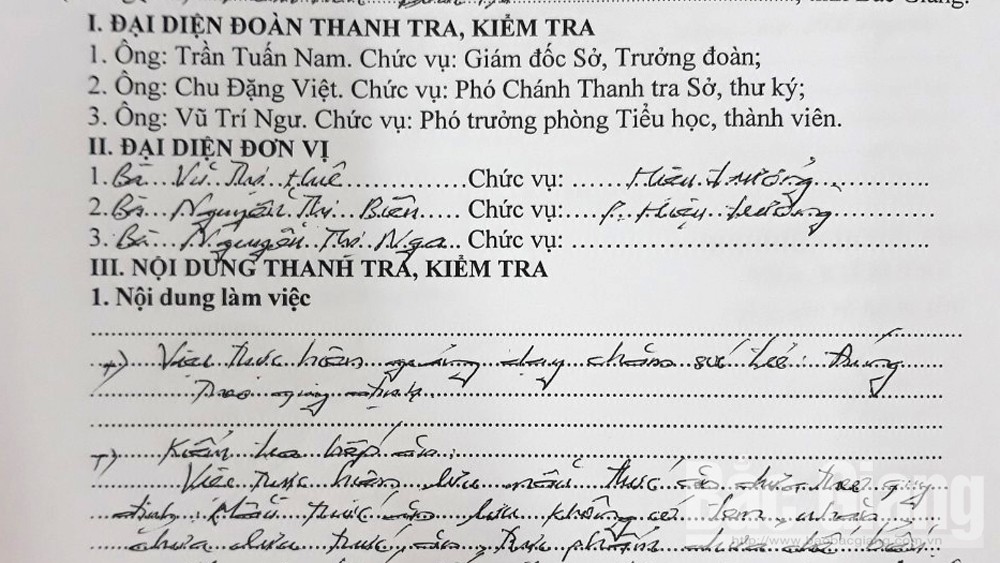 Bắc Giang.
I. ĐẠI DIỆN ĐOÀN THANH TRA, KIỂM TRA
1. Ông: Trần Tuấn Nam. Chức vụ: Giám đốc Sở, Trưởng đoàn;
2. Ông: Chu Đặng Việt. Chức vụ: Phó Chánh Thanh tra Sở, thư ký;
3. Ông: Vũ Trí Ngư. Chức vụ: Phó trưởng phòng Tiểu học, thành viên.
II. ĐẠI DIỆN ĐƠN VỊ
1. Bà Vũ Thị Huê Chức vụ: Hiệu trưởng
2. Bà Nguyễn Thị Biên Chức vụ: P. Hiệu trưởng
3. Bà Nguyễn Thị Nga Chức vụ:
III. NỘI DUNG THANH TRA, KIỂM TRA
1. Nội dung làm việc
+) Việc thực hiện giảng dạy chăm sóc trẻ: Đúng
theo quy định.
+) Kiểm tra bếp ăn:
Việc thực hiện lưu mẫu thức ăn chưa theo quy
định: lưu không có tem
chưa lưu thức ăn, thực phẩm
Bắc Giang
http://www.baobacgiang.com.vn